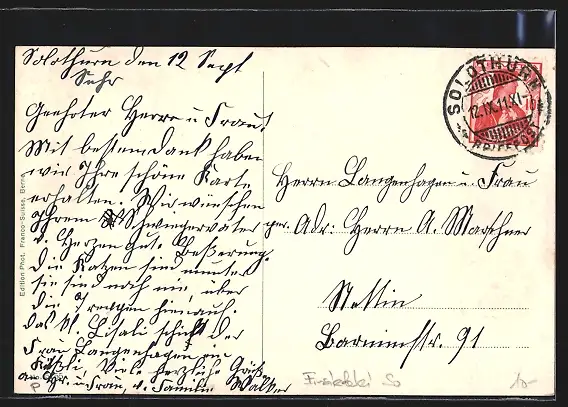 Solothurn den 12 Sept
Suhr
Geehrter Herr u Frau!
Mit bestem Dank haben
wir Ihre schöne Karte
erhalten. Wir wünschen
Ihrem Schwiegervater
v. Herzen gute Beßerung.
Die Katzen sind munter
sie sind noch nie, über
die Treppen hinauf.
Das kl. Lisali schickt der
Frau Langenhagen ein
viele herzliche Grüß
Hr. u Frau, v. Familie Walker
Edition Phot. Franco-Suisse, Berne
SOLOTHURN
12.IX.11.XI
BRIEFEXP.
Herrn Langenhagen u. Frau
per. Adr: Herrn A. Marschner
Stettin
Barnimstr. 91